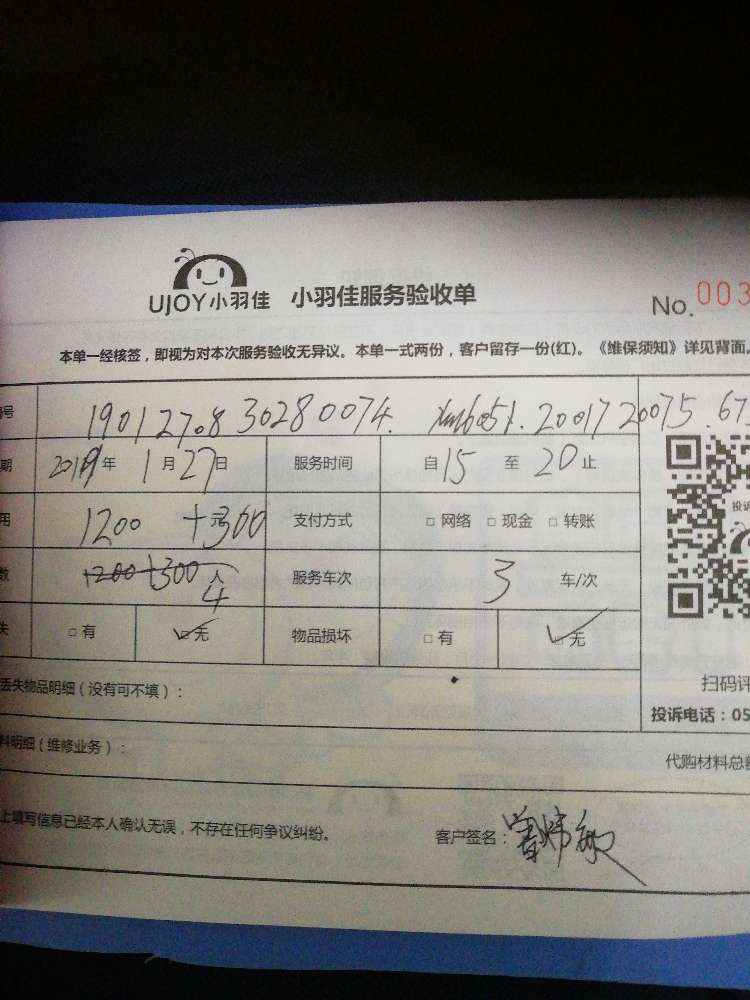 UJOY小羽佳 小羽佳服务验收单 No. 003
本单一经核签，即视为对本次服务验收无异议。本单一式两份，客户留存一份(红)。《维保须知》详见背面。
号 1901270830280074. 20017 20075.67
期 2019年1月27日 服务时间 自15至20止
用 1200 +300 支付方式 □网络 □现金 □转账
数 1200+300 4人 服务车次 3 车/次
失 □有 ☑无 物品损坏 □有 ☑无
丢失物品明细（没有可不填）： 扫码评
投诉电话：05
料明细（维修业务）： 代购材料总额
上填写信息已经本人确认无误，不存在任何争议纠纷。 客户签名：